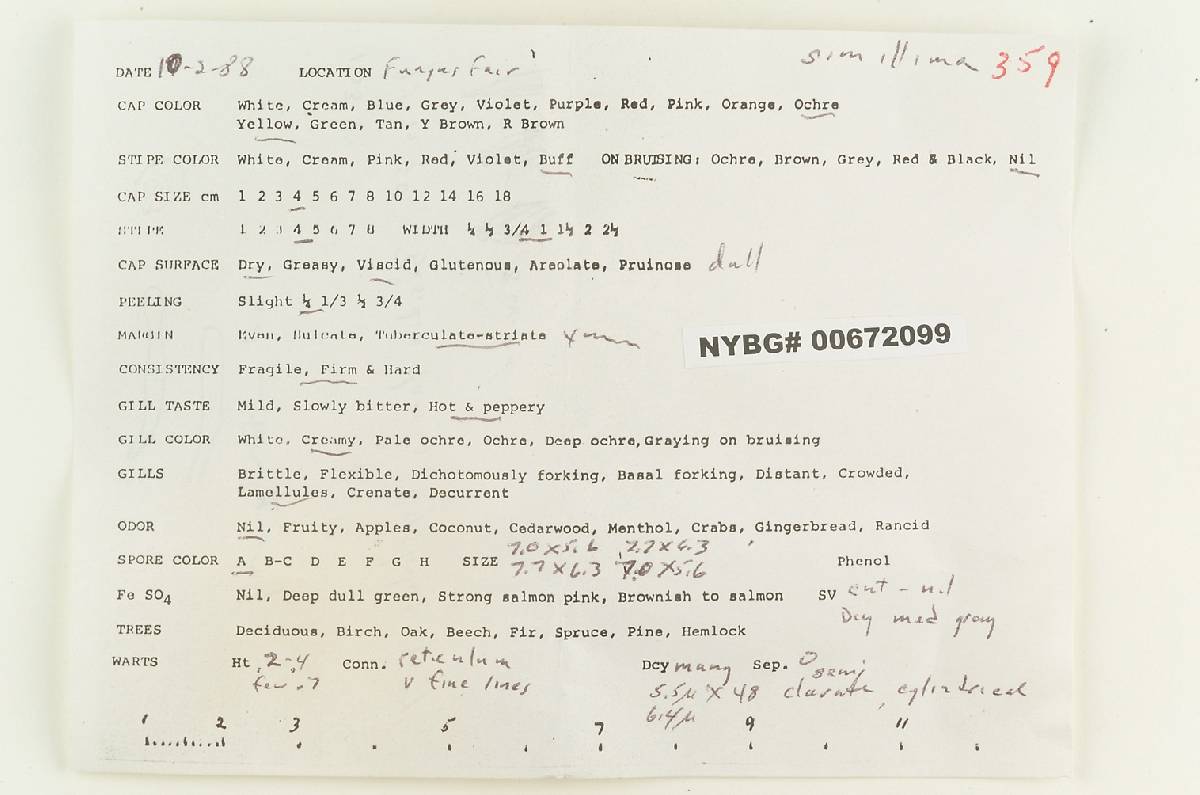 DATE 10-2-88 LOCATION Fungus Fair simillima 359
CAP COLOR White, Cream, Blue, Grey, Violet, Purple, Red, Pink, Orange, Ochre
Yellow, Green, Tan, Y Brown, R Brown
STIPE COLOR White, Cream, Pink, Red, Violet, Buff ON BRUISING: Ochre, Brown, Grey, Red & Black, Nil
CAP SIZE cm 1 2 3 4 5 6 7 8 10 12 14 16 18
STIPE 1 2 3 4 5 6 7 8 WIDTH ¼ ½ 3/4 1 1½ 2 2½
CAP SURFACE Dry, Greasy, Viscid, Glutenous, Areolate, Pruinose dull
PEELING Slight ¼ 1/3 ½ 3/4
MARGIN Even, Sulcate, Tuberculate-striate
NYBG# 00672099
CONSISTENCY Fragile, Firm & Hard
GILL TASTE Mild, Slowly bitter, Hot & peppery
GILL COLOR White, Creamy, Pale ochre, Ochre, Deep ochre, Graying on bruising
GILLS Brittle, Flexible, Dichotomously forking, Basal forking, Distant, Crowded,
Lamellules, Crenate, Decurrent
ODOR Nil, Fruity, Apples, Coconut, Cedarwood, Menthol, Crabs, Gingerbread, Rancid
7.0 X 5.6 7.7 X 6.3
SPORE COLOR A B-C D E F G H SIZE 7.7 X 6.3 7.0 X 5.6 Phenol
Fe SO4 Nil, Deep dull green, Strong salmon pink, Brownish to salmon SV cut - nil
Dcy med gray
TREES Deciduous, Birch, Oak, Beech, Fir, Spruce, Pine, Hemlock
WARTS Ht .2-.4 Conn. reticulum Dcy many Sep. 0
few .7 v fine lines 5.5µ X 48 clavate, cylindrical
6.4µ
1 2 3 5 7 9 11